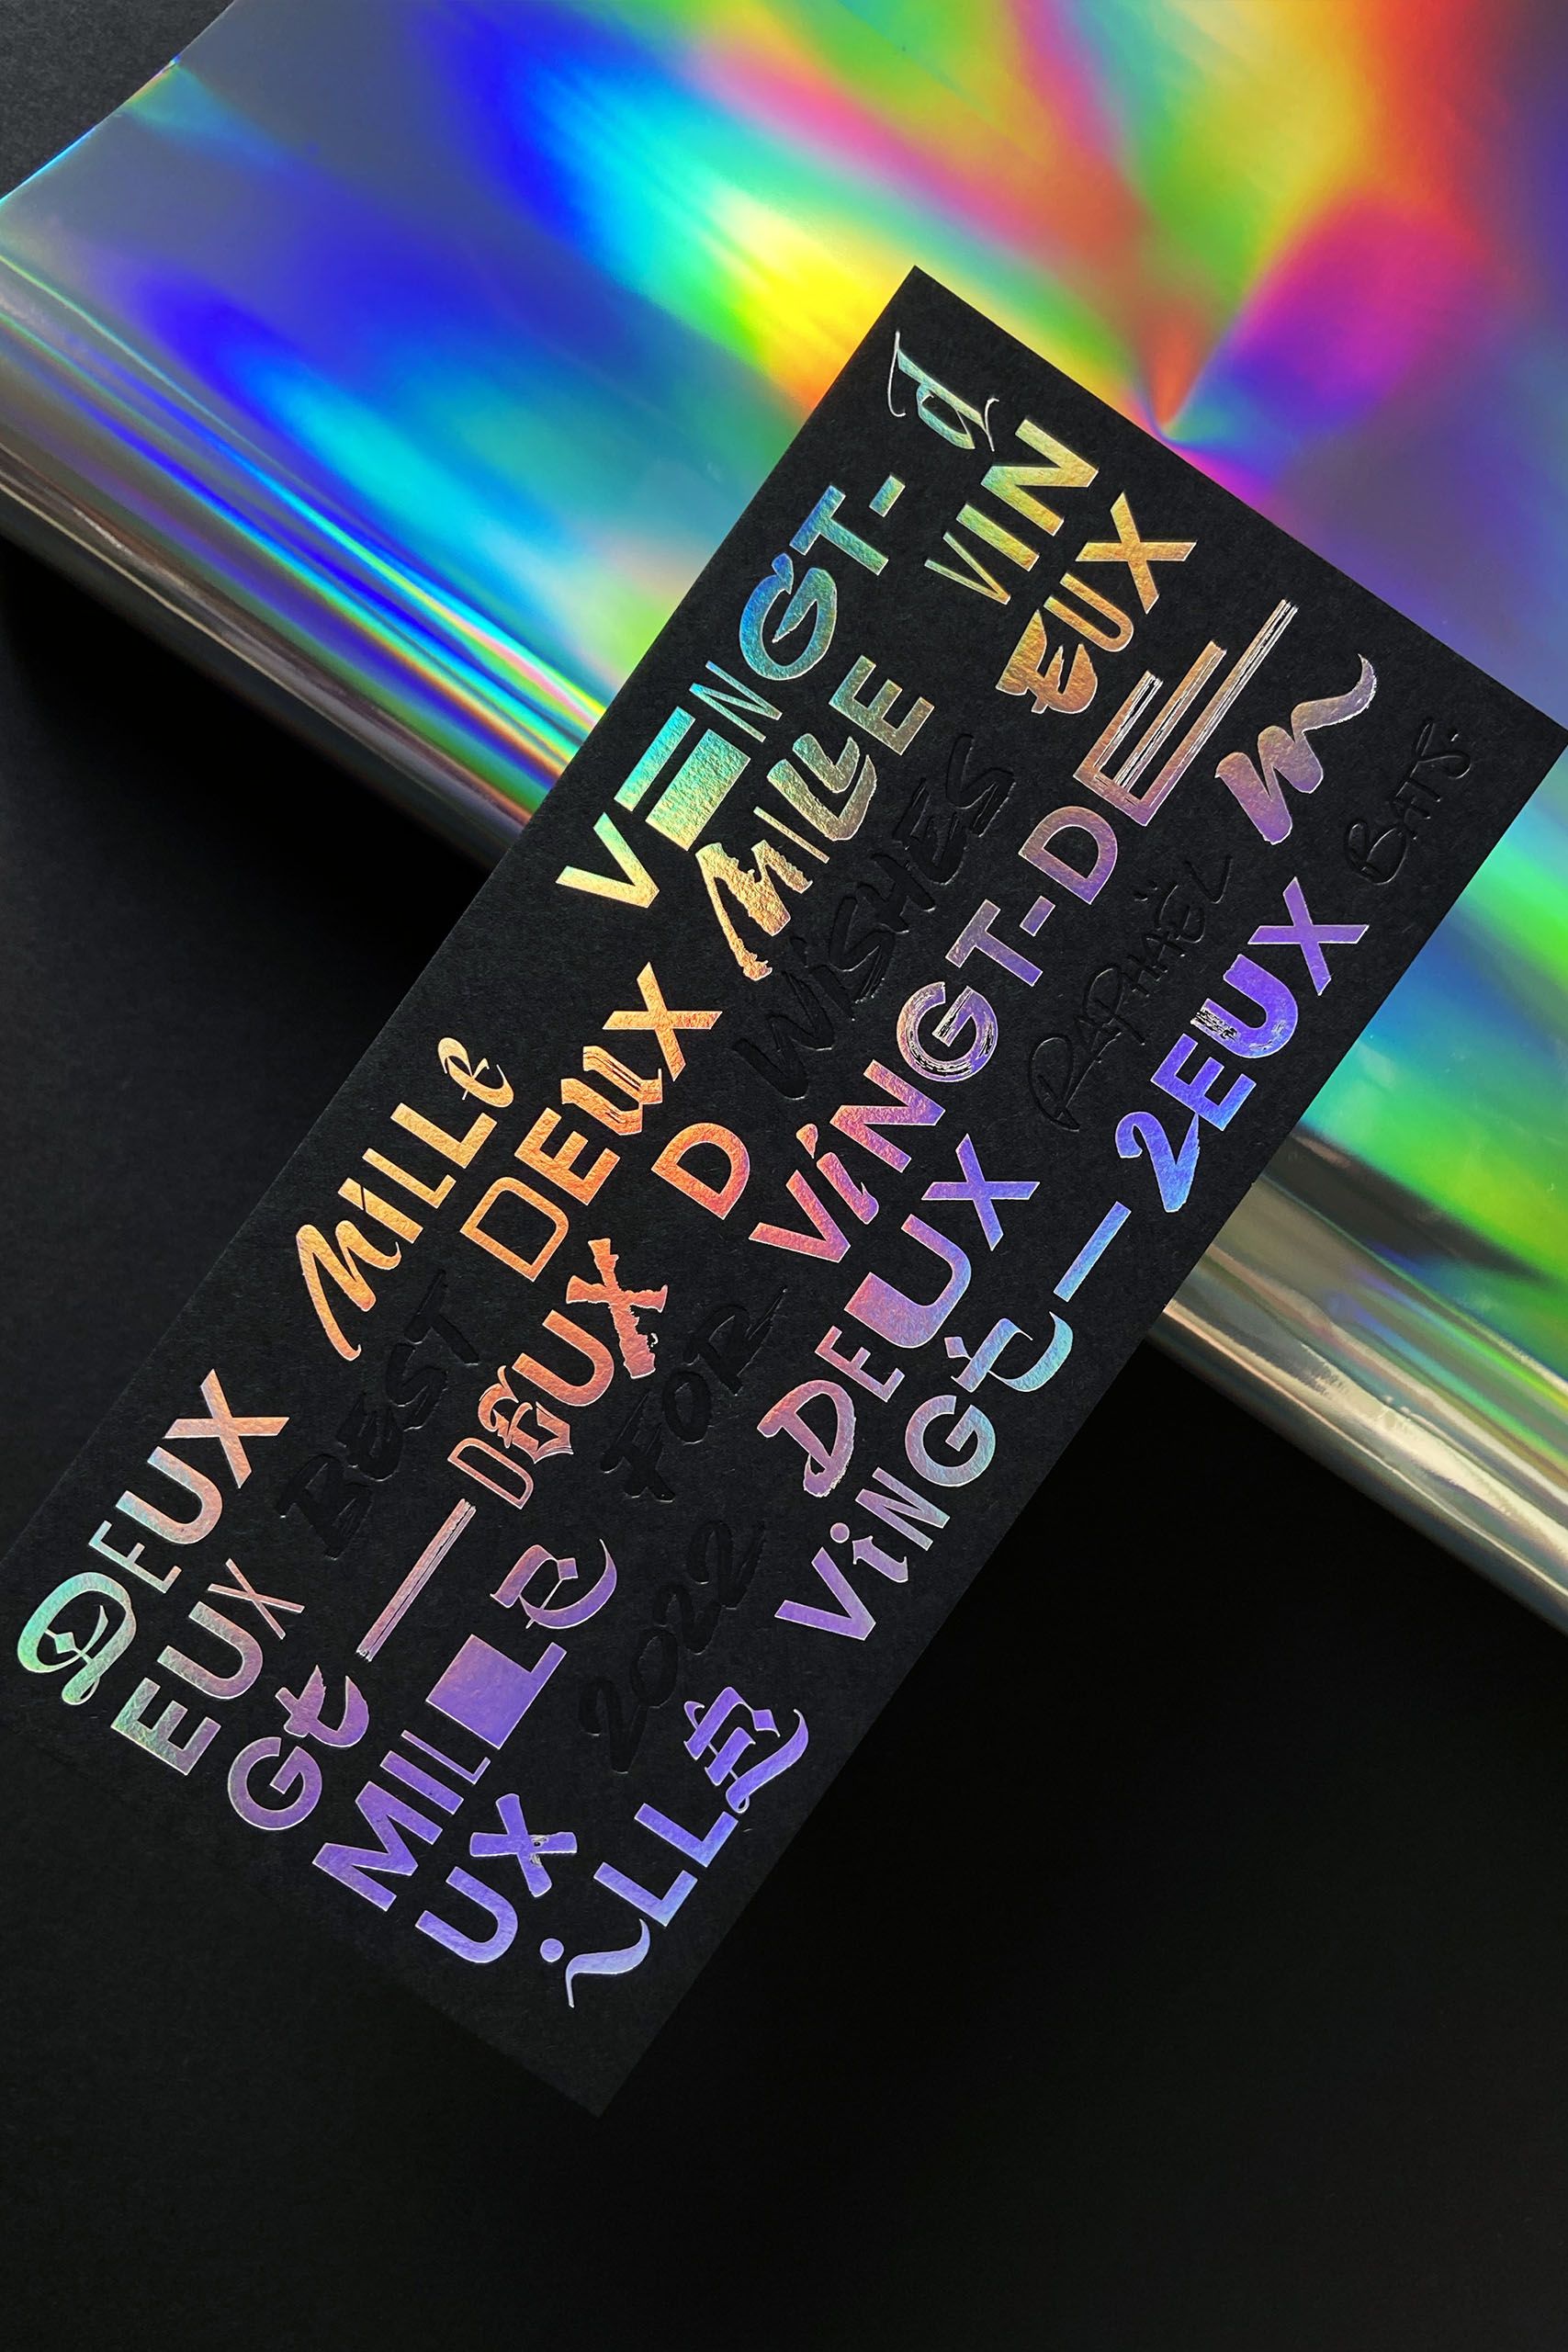 DEUX MILLe VINGT-d
EUX BEST DEUX MILLE VIN
Gt—DEUX D WiSHES EUX
MILLE FOR ViNGT-DE
UX 2022 DEUX RAPHAËL m
iLLE ViNGt—2EUX BATS.